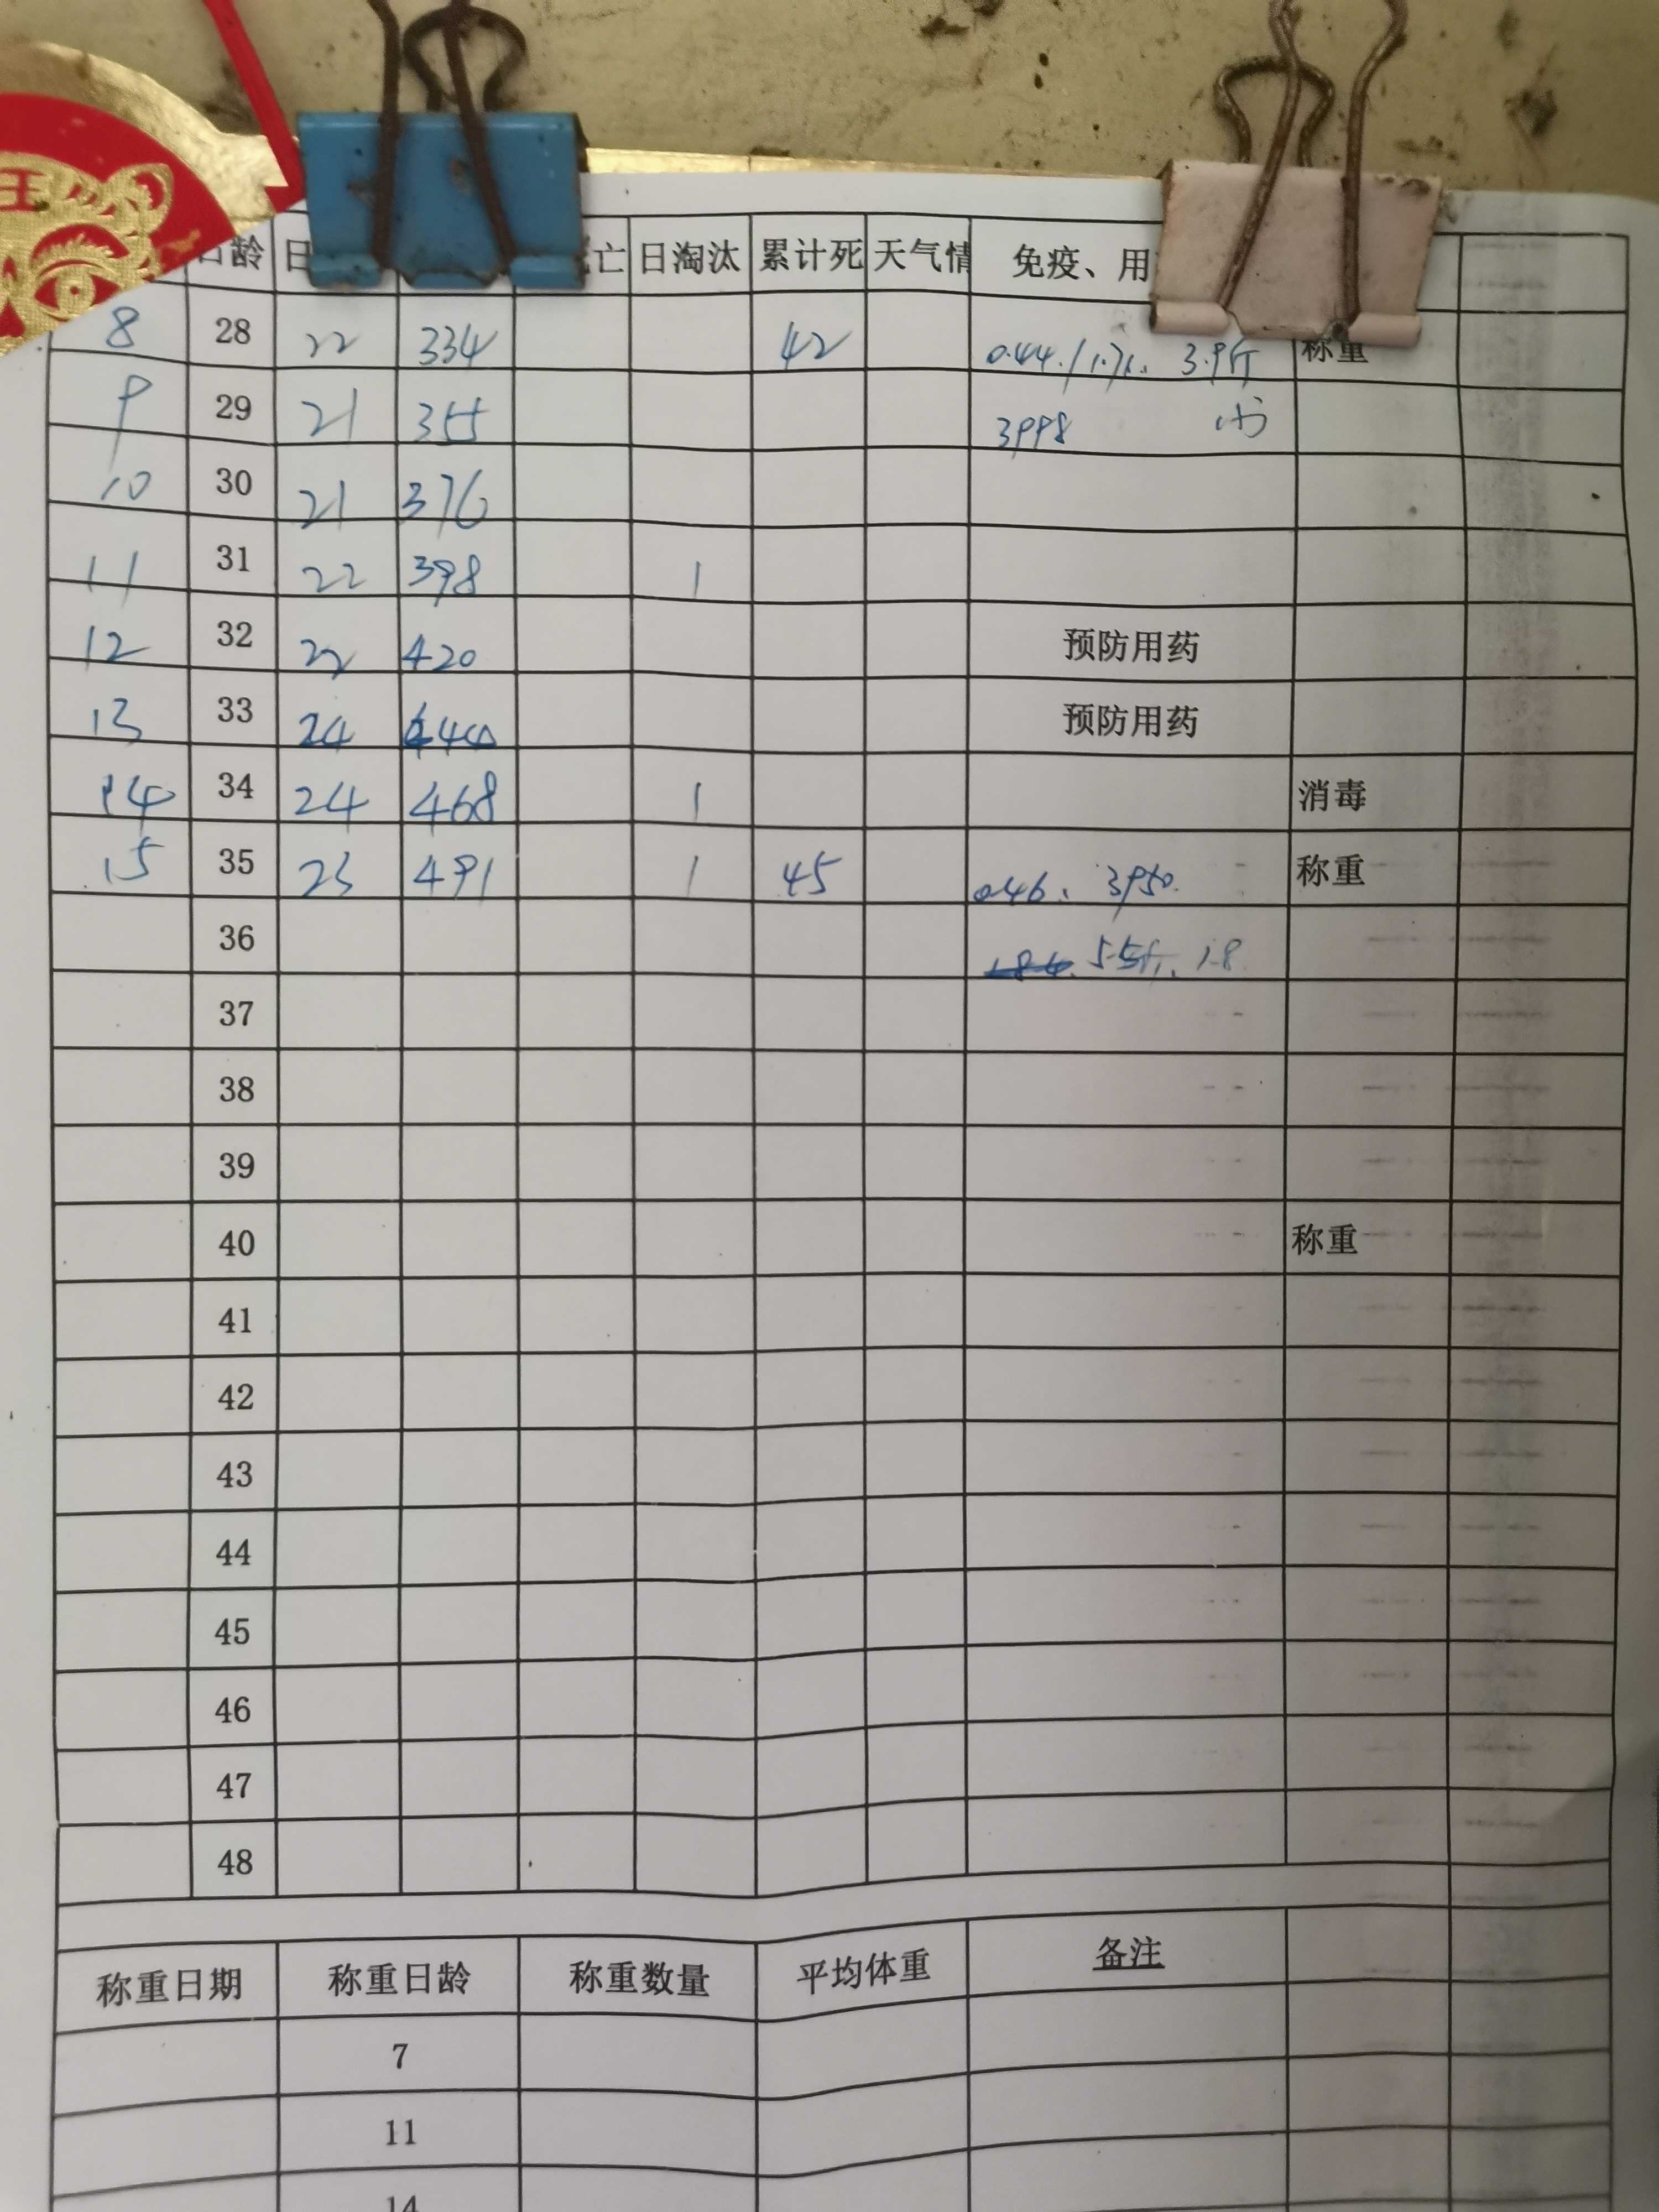 王
日龄 日 亡 日淘汰 累计死 天气情 免疫、用
8 28 22 334 42 0.44. 3.9斤 称重
9 29 21 355 3998
10 30 21 376
11 31 22 398 1
12 32 22 420 预防用药
13 33 24 444 预防用药
14 34 24 468 1 消毒
15 35 23 491 1 45 0.46. 3950. 称重
36 5.5斤. 1.8
37
38
39
40 称重
41
42
43
44
45
46
47
48
称重日期 称重日龄 称重数量 平均体重 备注
7
11
14